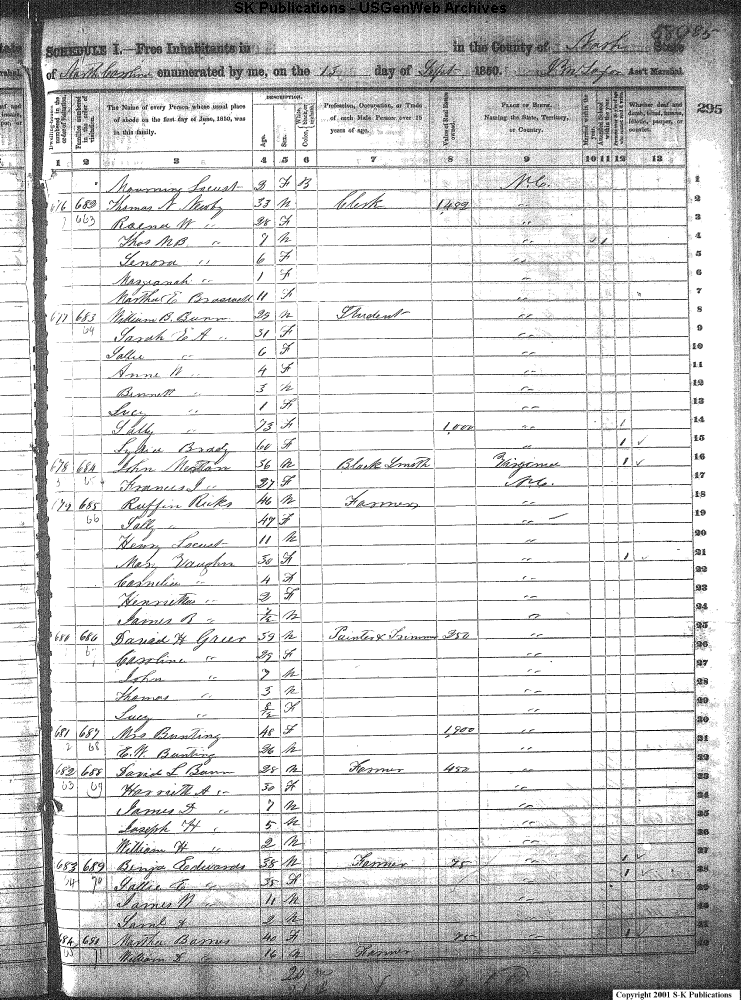 SK Publications - USGenWeb Archives
585
SCHEDULE I.—Free Inhabitants in in the County of Nash State
of North Carolina enumerated by me, on the 13 day of Sept 1850. Ass't Marshal.
295
Dwelling-houses numbered in the order of visitation.
Families numbered in the order of visitation.
The Name of every Person whose usual place of abode on the first day of June, 1850, was in this family.
DESCRIPTION.
Age.
Sex.
Color, White, black, or mulatto.
Profession, Occupation, or Trade of each Male Person over 15 years of age.
Value of Real Estate owned.
PLACE OF BIRTH. Naming the State, Territory, or Country.
Married within the year.
Whether deaf and dumb, blind, insane, idiotic, pauper, or convict.
1 2 3 4 5 6 7 8 9 10 11 12 13
Mourning Locust 2 F B N.C. 1
676 682 Thomas N 33 M Clerk 2
663 W " 28 F " 3
Thos M B " 7 M " 1 4
Senora " 6 F " 5
" 1 F " 6
Martha E Braswell 11 F " 7
677 683 William B. Bunn 29 M Student " 8
64 Sarah E A " 31 F " 9
Sallie " 6 F " 10
Anne W " 4 F " 11
Bennett " 3 M " 12
Lucy " 1 F " 13
Sally " 73 F 1,000 " 1 14
Brady 60 F " 1 15
678 684 John 36 M Black Smith Virginia 1 16
Frances J " 27 F N.C. 17
679 685 Ruffin Ricks 46 M Farmer " 18
66 Sally " 47 F " 19
Henry Locust 11 M " 20
Mary Vaughn 30 F " 1 21
Cornelia " 4 F " 22
Henrietta " 2 F " 23
James R " M " 24
680 686 David H Greer 39 M Painter & Trimmer 250 " 25
Caroline " 29 F " 26
John " 7 M " 27
Thomas " 3 M " 28
Lucy " F " 29
681 687 Mrs Bunting 48 F 1,900 " 30
68 Bunting 26 M " 31
682 688 David L Bunn 28 M Farmer 450 " 32
63 69 Harrieth A " 30 F "
James " 7 M "
Joseph H " 5 M "
William H " 2 M "
683 689 Benja Edwards 38 M Farmer 75 " 1
70 Sallie E " 35 F " 1
James W " 11 M "
" 2 M "
684 690 Martha Barnes 40 F 75 " 1
William " 16 M Farmer "
Copyright 2001 S-K Publications